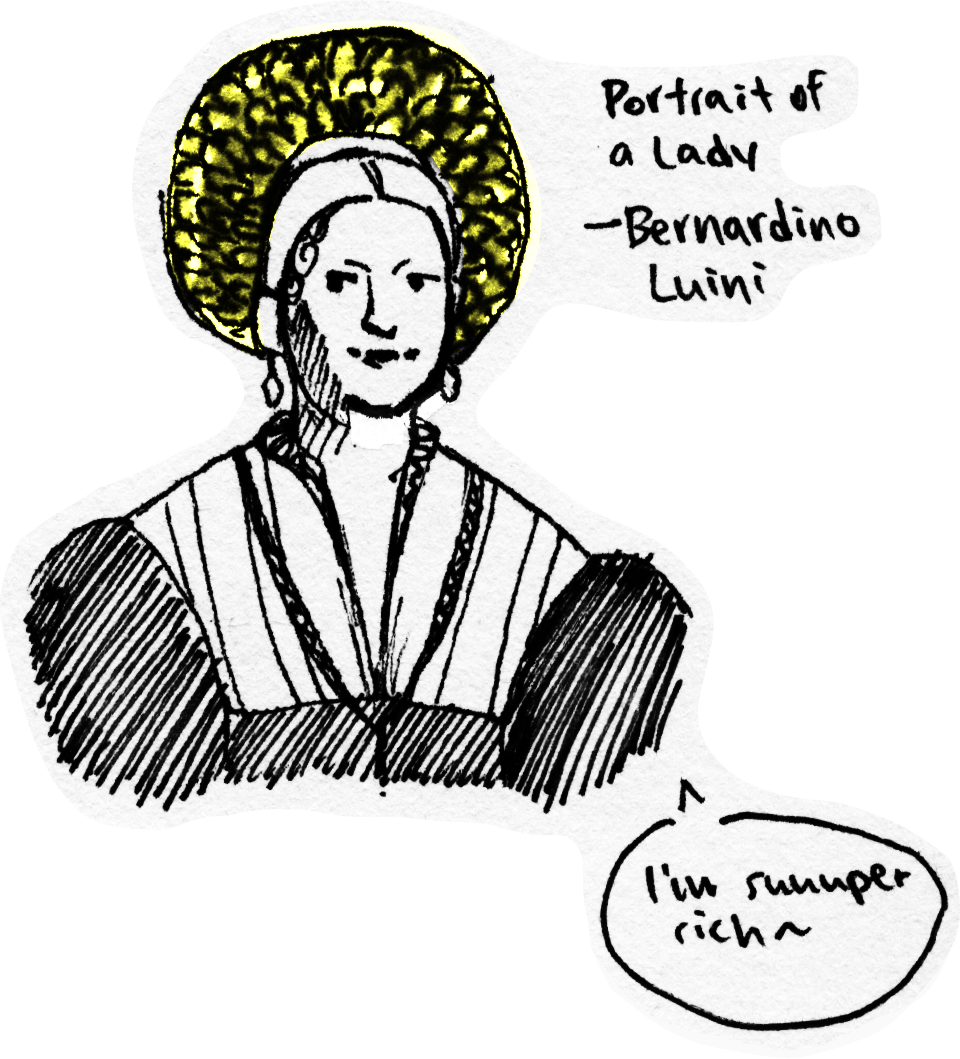 Portrait of
a Lady
—Bernardino
Luini
I'm suuuper
rich~